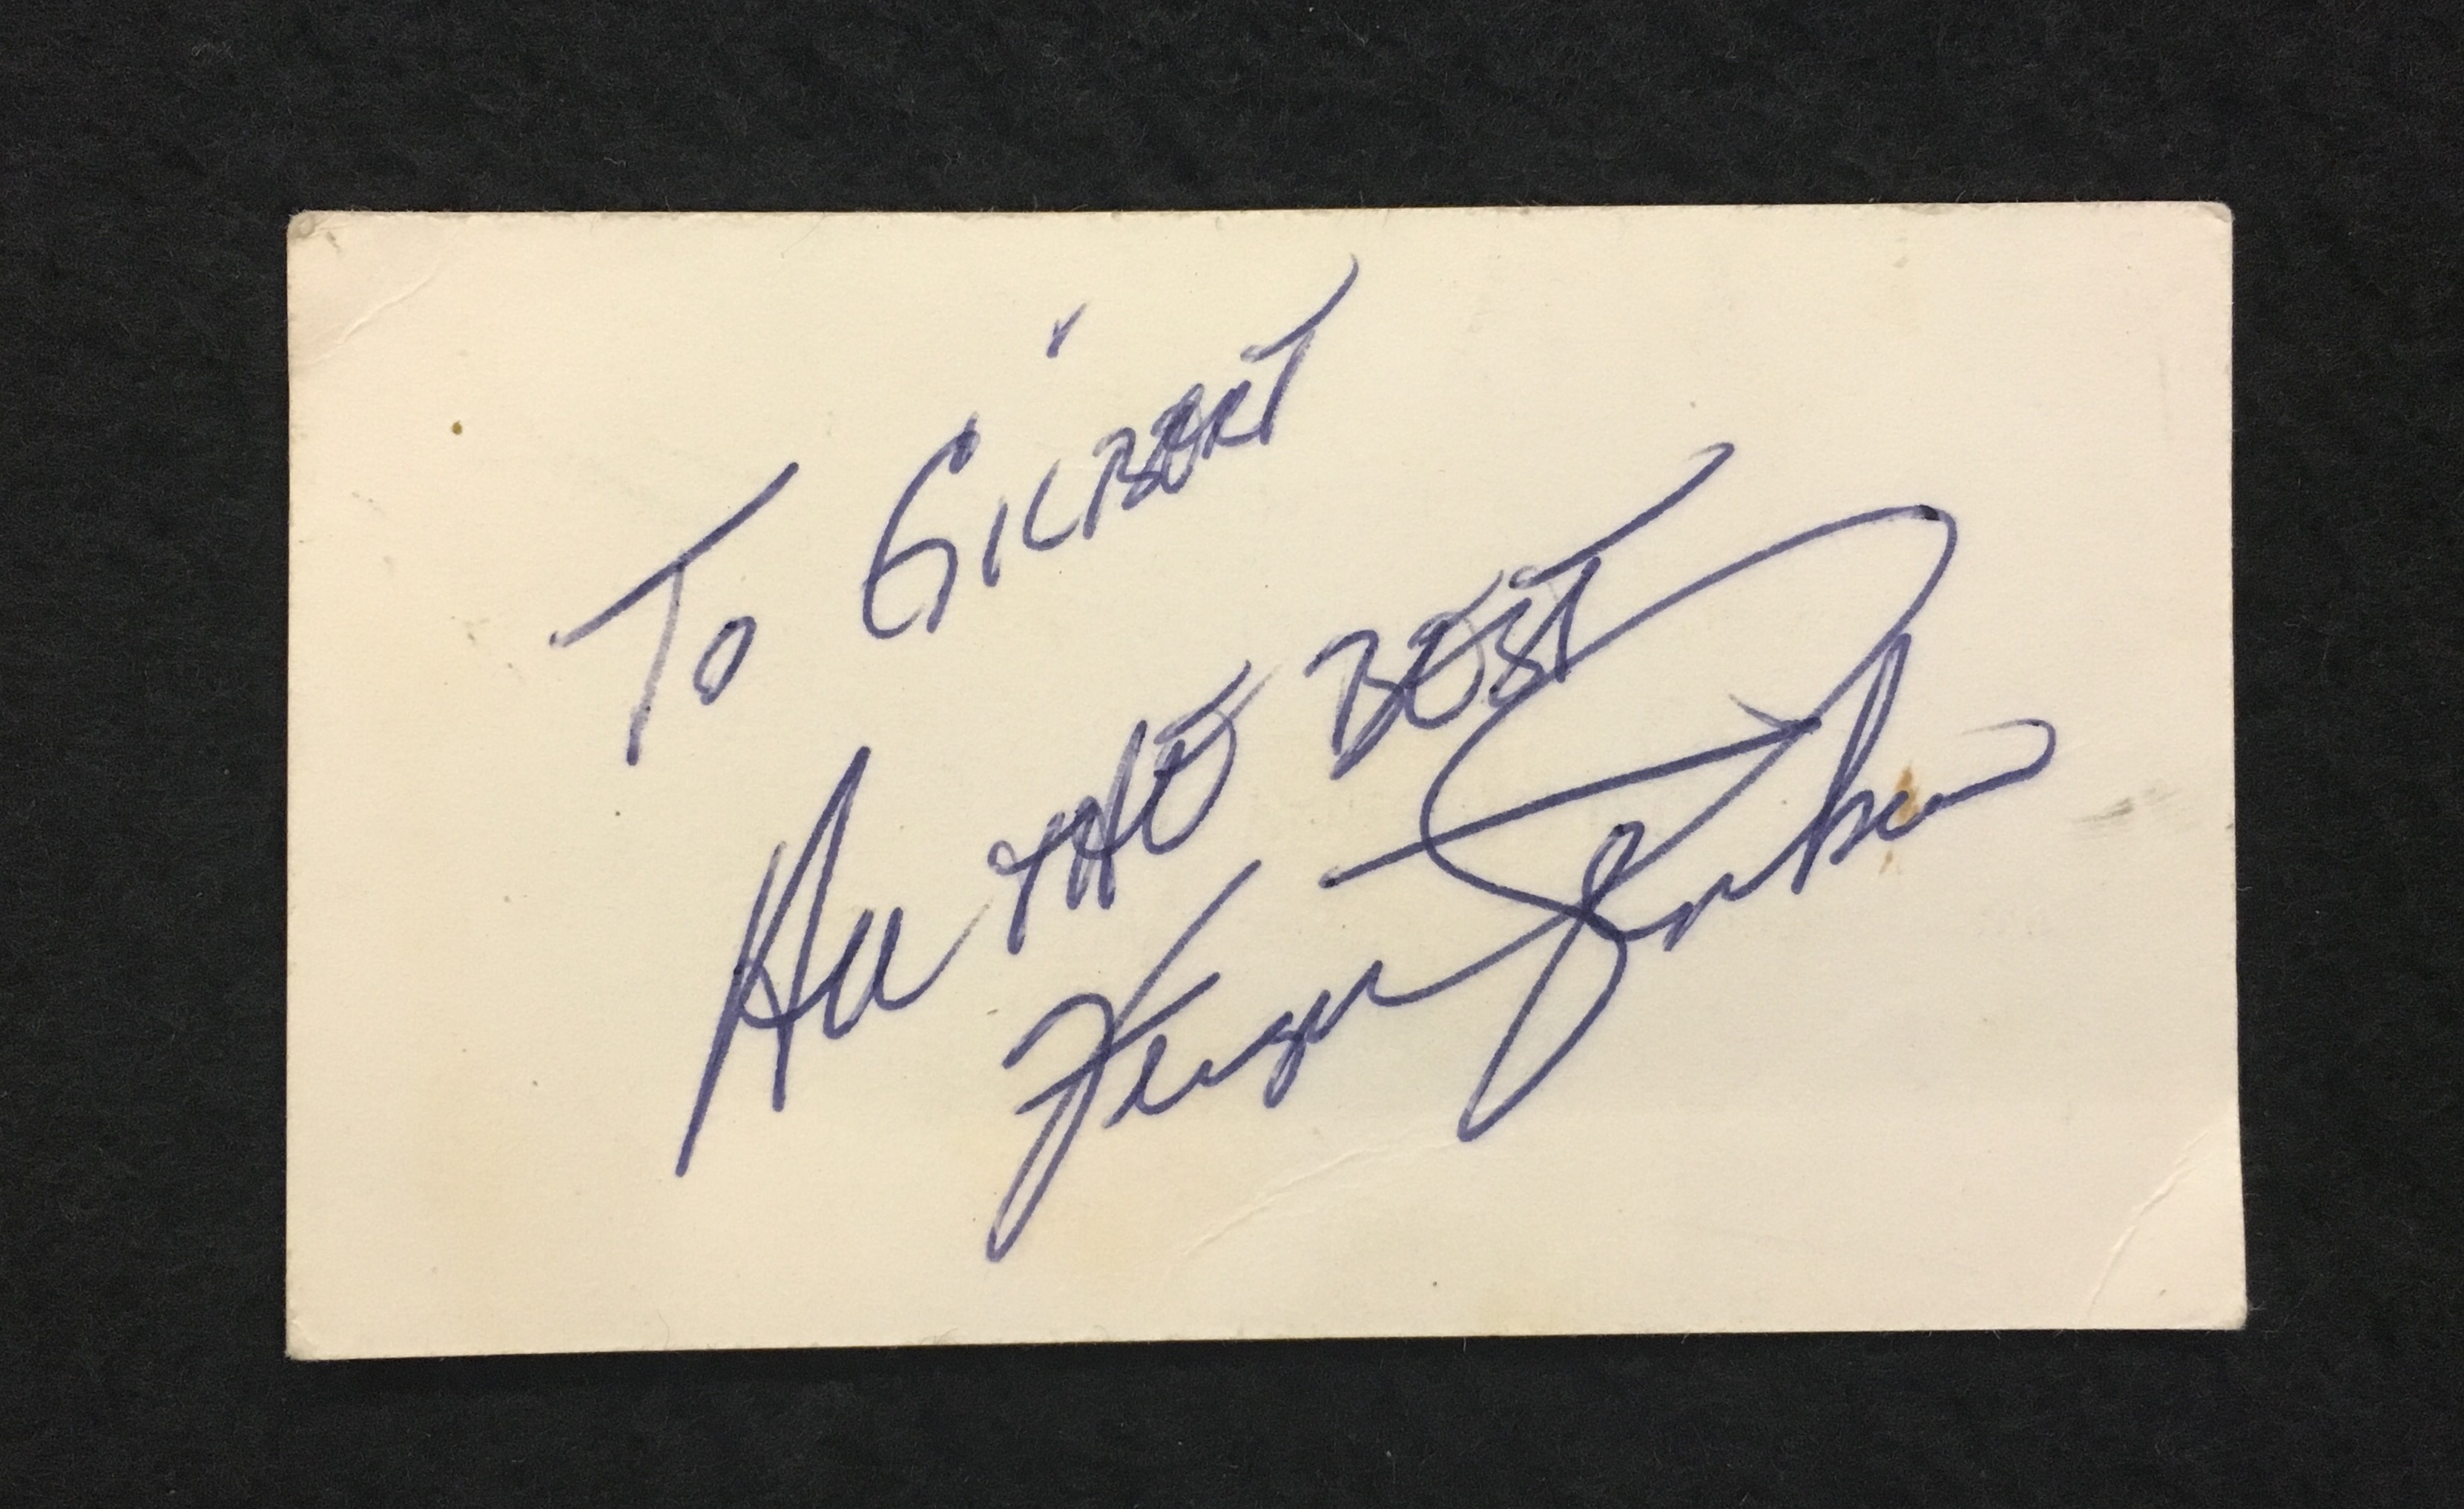 To GiLBERT
ALL THE BEST
Ferguson Jenkins